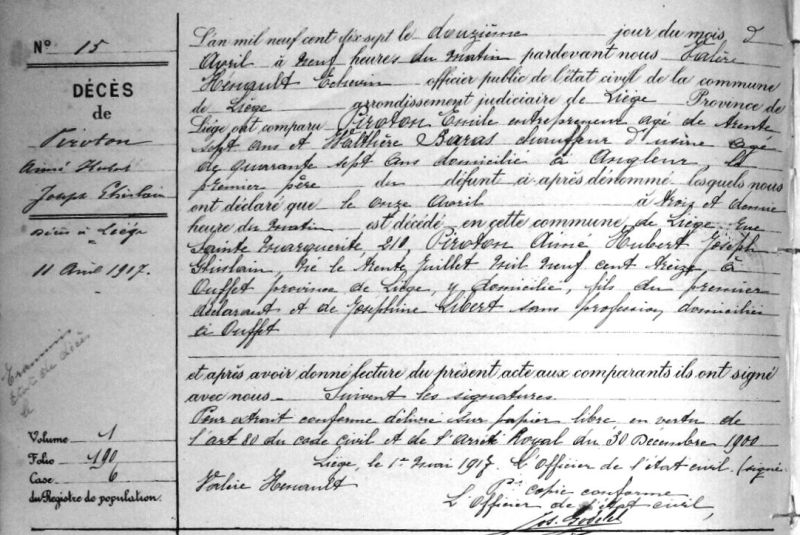 N° 15
DÉCÈS
de
Piroton
Aimé Hubert
Joseph Ghislain
décédé à Liége
11 Avril 1917.
Volume 1
Folio 190
Case 6
du Registre de population.
L'an mil neuf cent dix sept le douzième jour du mois d
Avril à neuf heures du matin pardevant nous Valère
Hénault Echevin officier public de l'état civil de la commune
de Liége arrondissement judiciaire de Liége Province de
Liége ont comparu Piroton Emile entrepreneur agé de trente
sept ans et Walthère Baras chauffeur d'usine agé
de quarante sept ans domicilié à Angleur, le
premier père du défunt ci après dénommé lesquels nous
ont déclaré que le onze Avril à trois et demie
heure du matin est décédé en cette commune de Liége rue
Sainte Marguerite, 210, Piroton Aimé Hubert Joseph
Ghislain, né le trente Juillet mil neuf cent treize à
Ouffet province de Liége, y domicilié, fils du premier
déclarant et de Joséphine Libert sans profession, domiciliés
à Ouffet
et après avoir donné lecture du présent acte aux comparants ils ont signé
avec nous. Suivent les signatures
Pour extrait conforme délivré sur papier libre en vertu de
l'art 80 du code civil et de l'Arrêté Royal du 30 Décembre 1900
Liége, le 1er mai 1917. L'Officier de l'état civil (signé
Valère Hénault
Pr copie conforme
L'Officier de l'état civil,